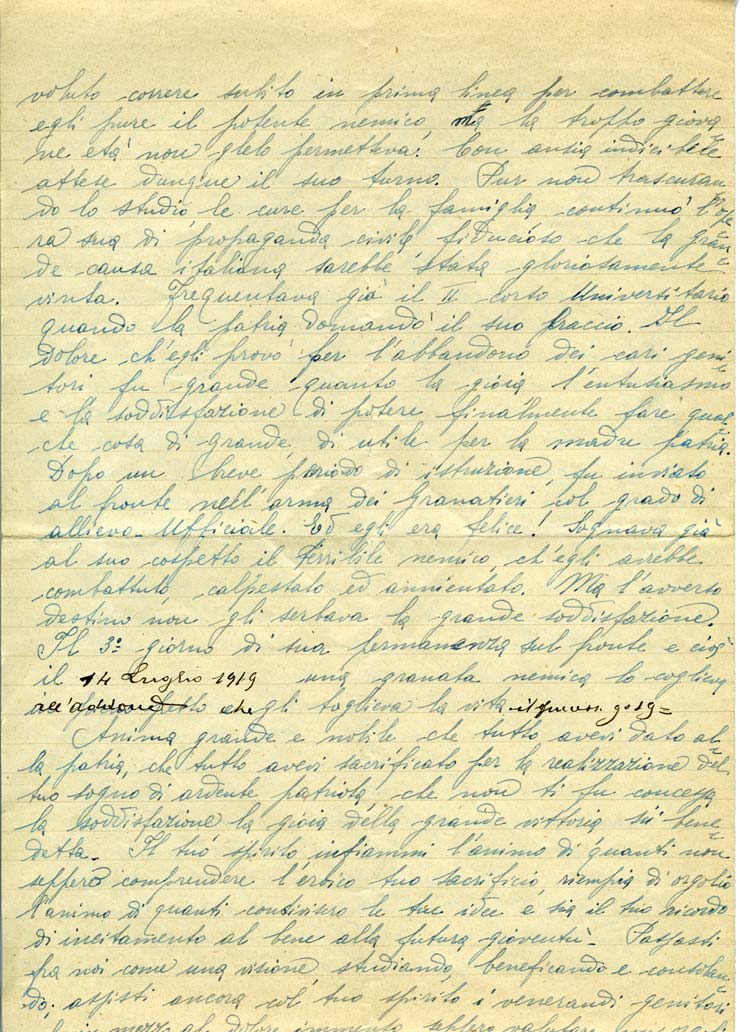 voluto correre subito in prima linea per combattere
egli pure il potente nemico, ma la troppo giova=
ne età non glielo permetteva. Con ansia indicibile
attese dunque il suo turno. Pur non trascuran
do lo studio le cure per la famiglia continuò l'ope=
ra sua di propaganda civile fiducioso che la gran=
de causa italiana sarebbe stata gloriosamente
vinta. Frequentava già il II. corso Universitario
quando la patria domandò il suo braccio. Il
dolore ch'egli provò per l'abbandono dei cari geni=
tori fu grande quanto la gioia l'entusiasmo
e la soddisfazione di potere finalmente fare qual=
che cosa di grande, di utile per la madre patria.
Dopo un breve periodo di istruzione, fu inviato
al fronte nell'arma dei Granatieri col grado di
allievo-Ufficiale. Ed egli era felice! Sognava già
al suo cospetto il terribile nemico, ch'egli avrebbe
combattuto, calpestato ed annientato. Ma l'avverso
destino non gli serbava la grande soddisfazione.
Il 3º giorno di sua permanenza sul fronte e cioè
il 14 Luglio 1919 una granata nemica lo coglieva
all'addome che gli toglieva la vita il
Anima grande e nobile che tutto avevi dato al=
la patria, che tutto avevi sacrificato per la realizzazione del
tuo sogno di ardente patriota, che non ti fu concessa
la soddisfazione la gioia della grande vittoria sii bene=
detta. Il tuo spirito infiammi l'animo di quanti non
seppero comprendere l'eroico tuo sacrificio, riempia di orgoglio
l'animo di quanti condivisero le tue idee e sia il tuo ricordo
di incitamento al bene alla futura gioventù- Passasti
fra noi come una visione, studiando, beneficando e consolan=
do; assisti ancora col tuo spirito i venerandi genitori
mezzo al dolore immenso seppero